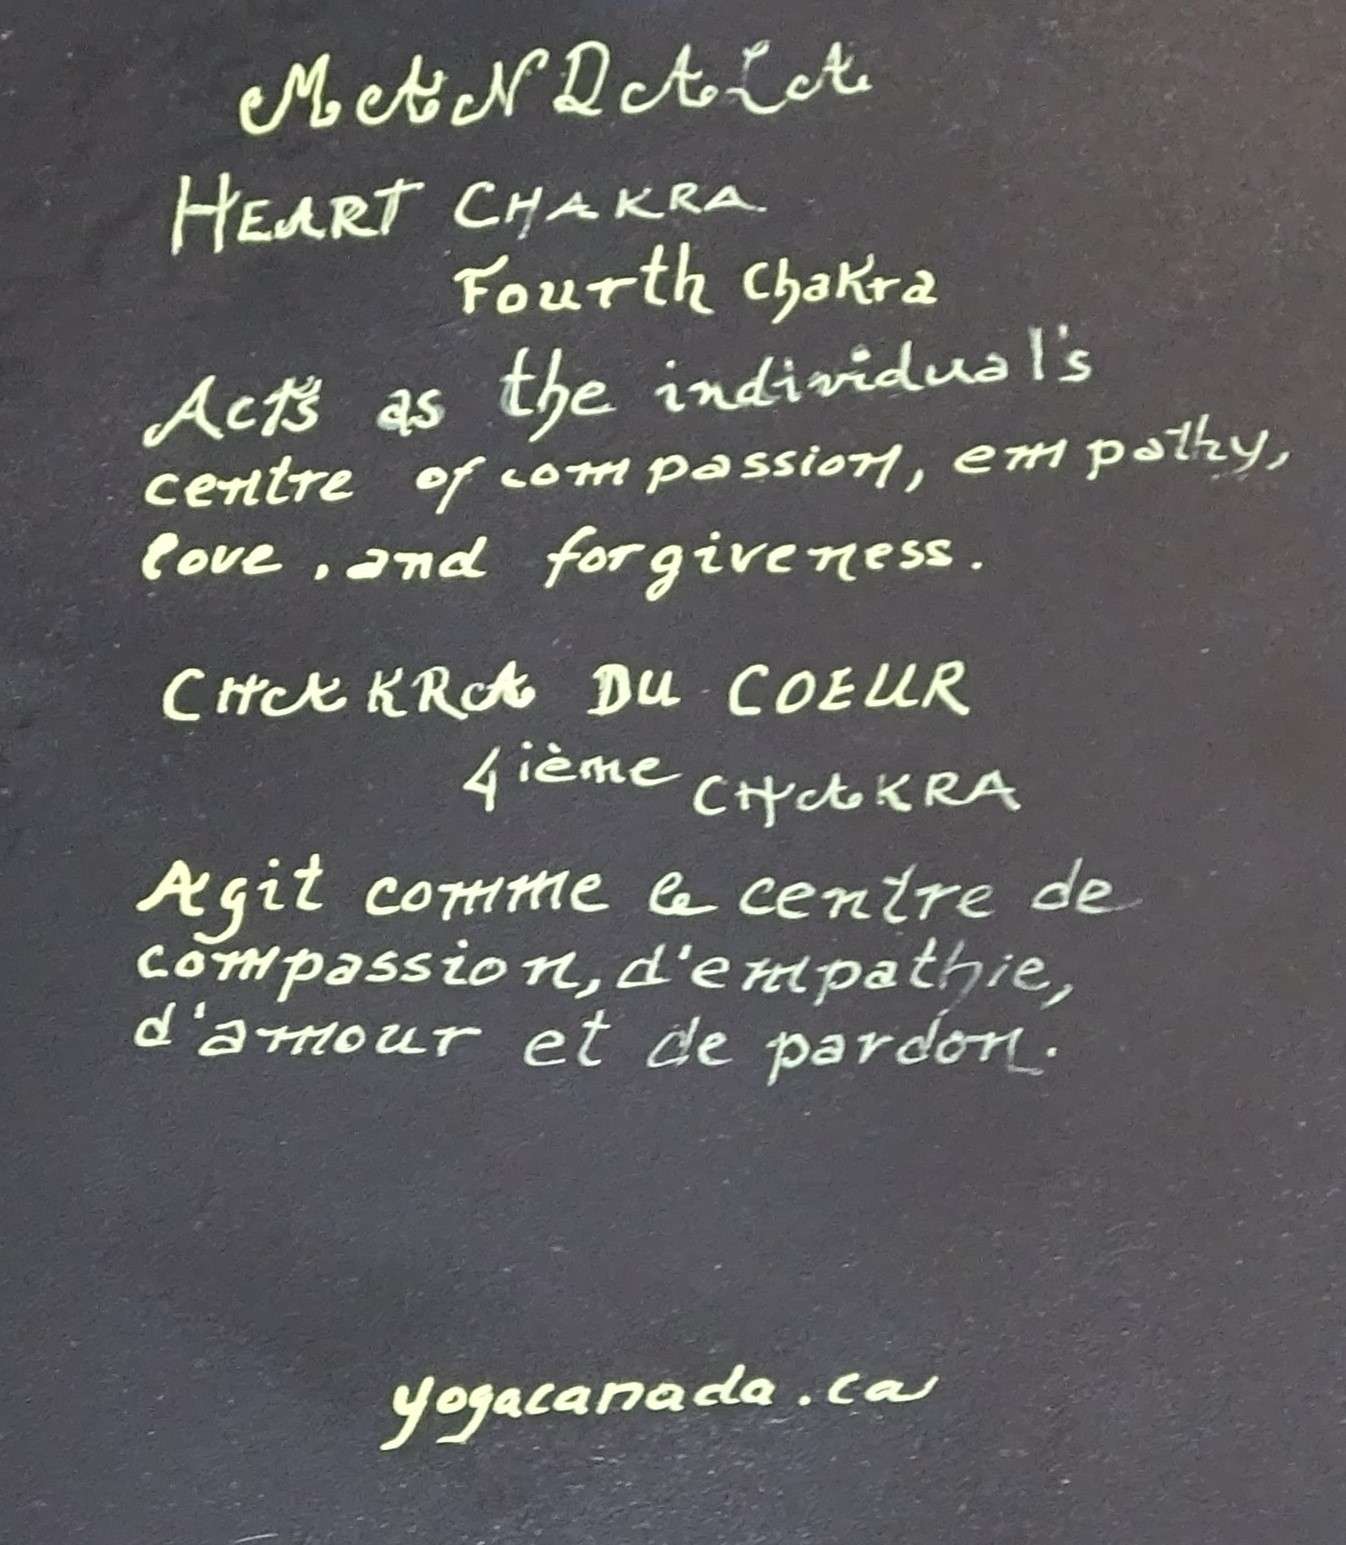 MANDALA
HEART CHAKRA
Fourth Chakra
Acts as the individual's
centre of compassion, empathy,
love, and forgiveness.
CHAKRA DU COEUR
4ième CHAKRA
Agit comme le centre de
compassion, d'empathie,
d'amour et de pardon.
yogacanada.ca